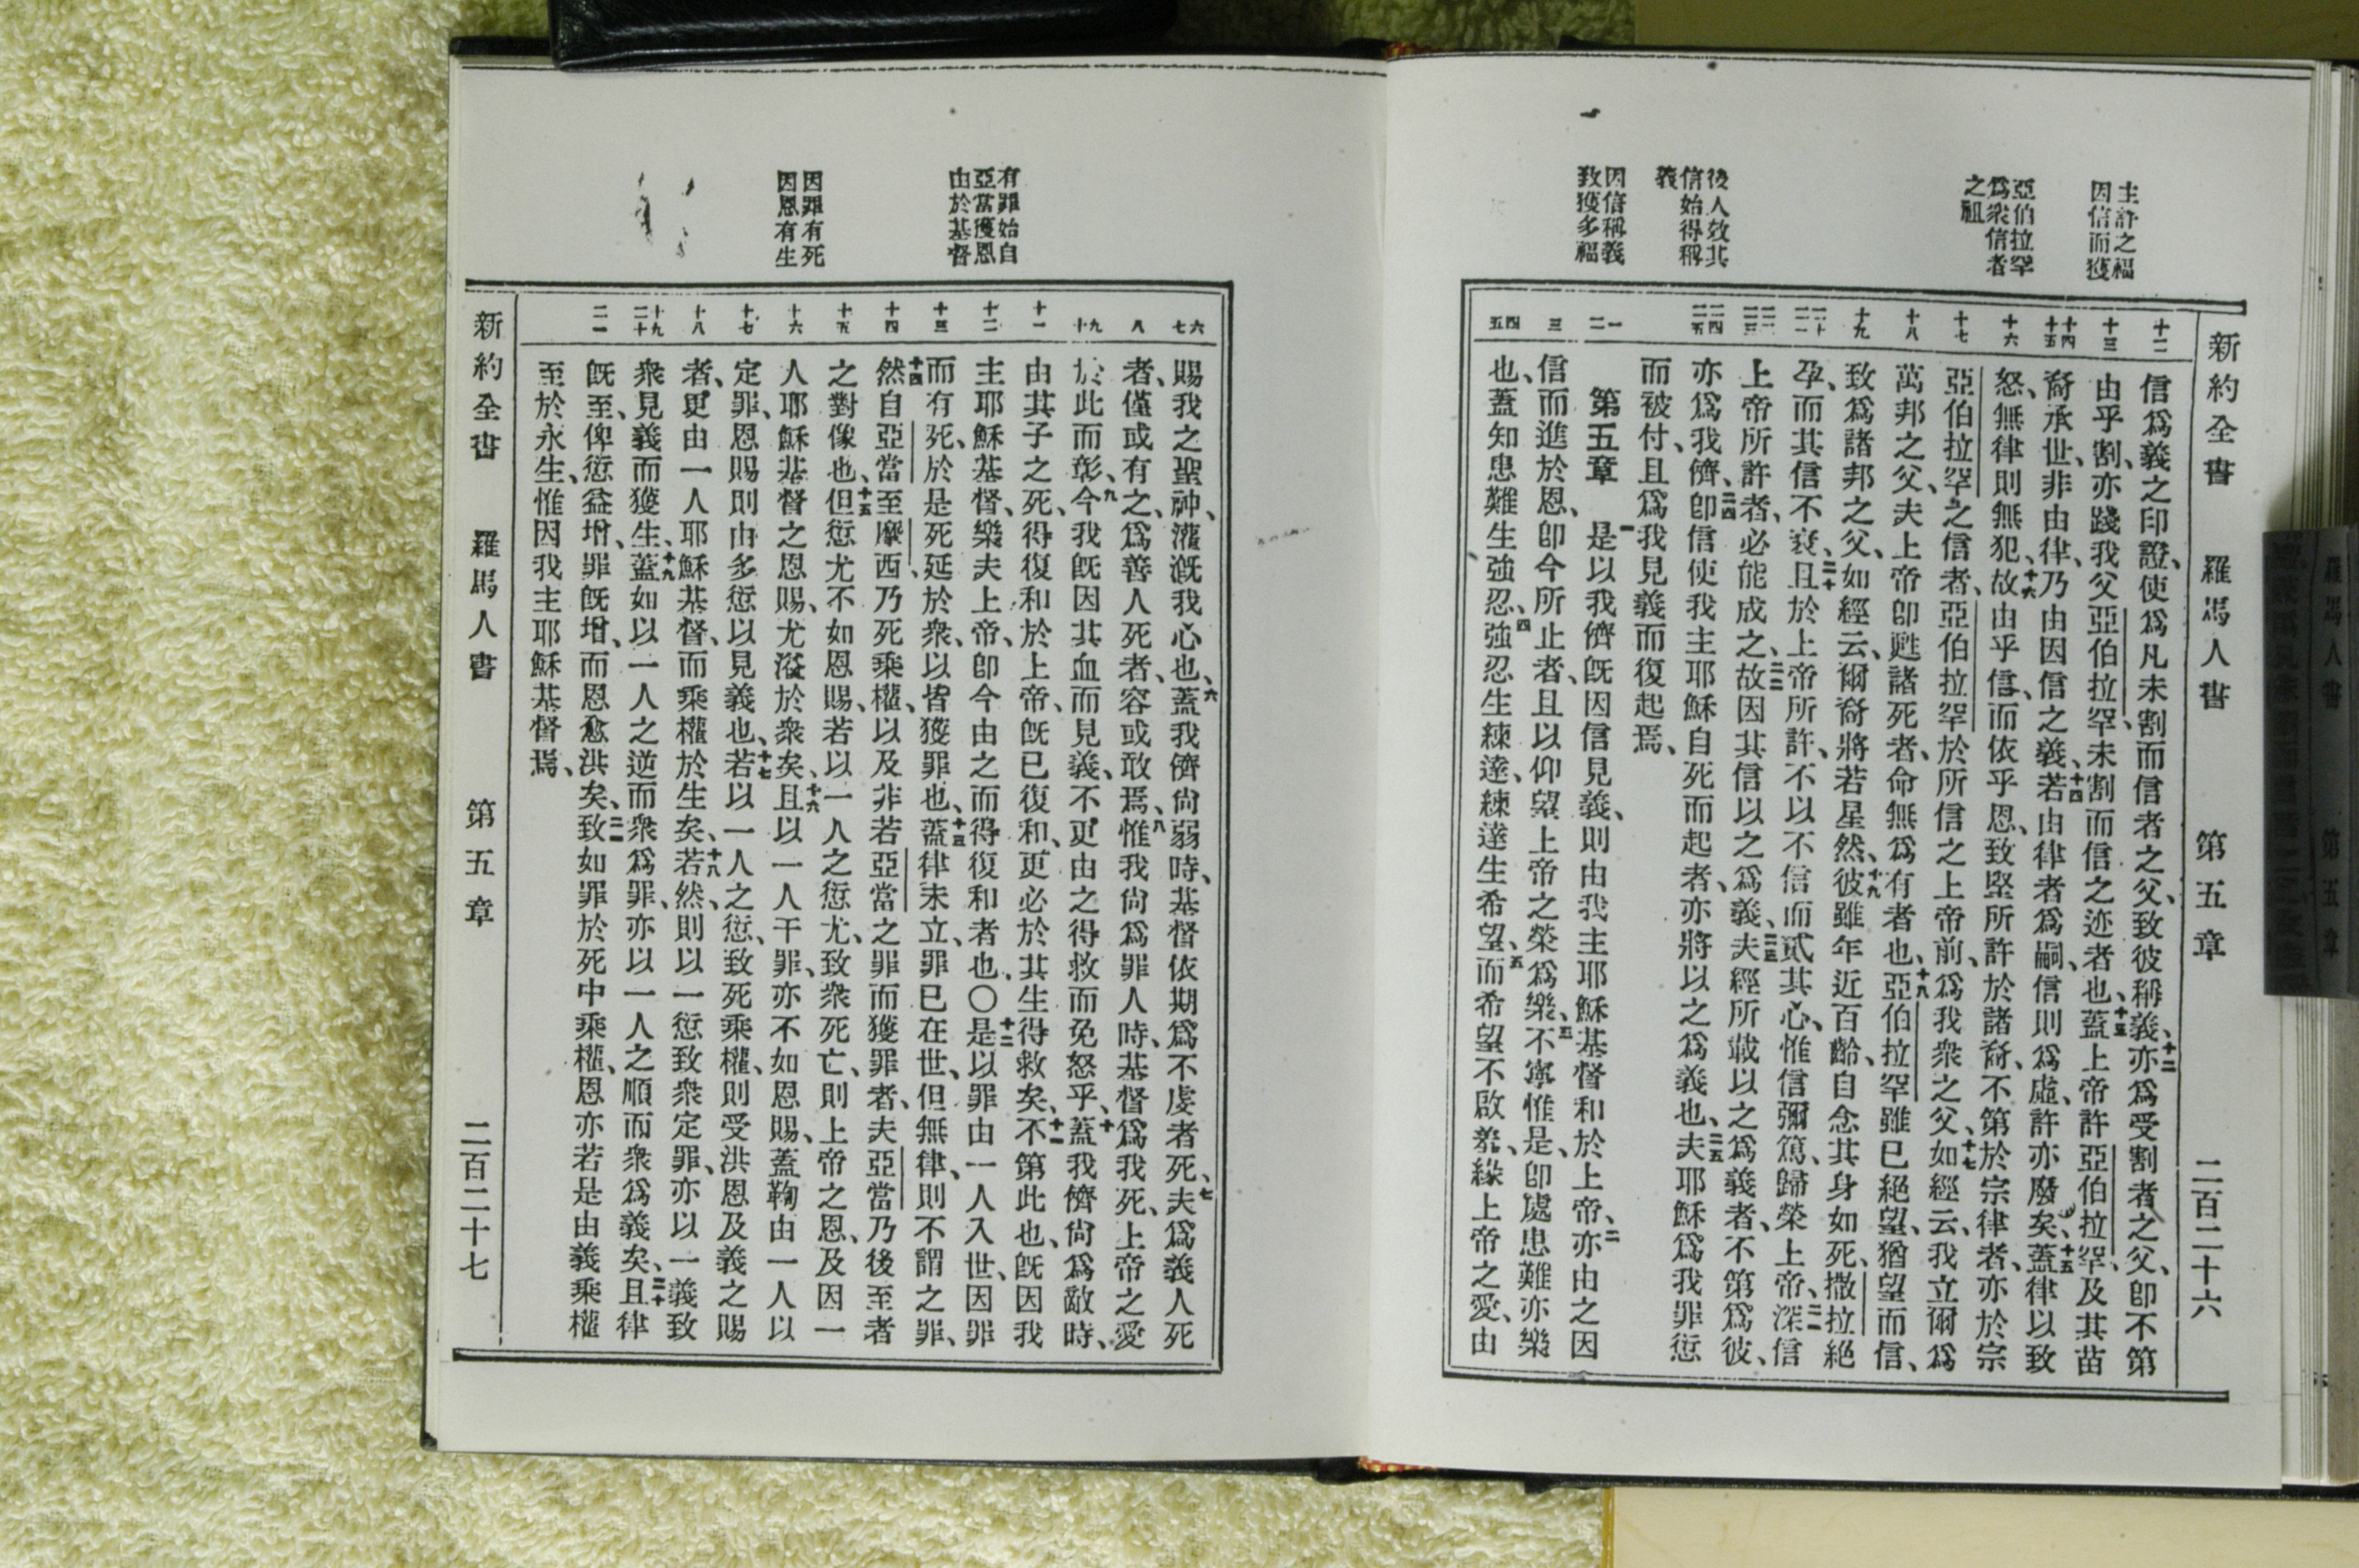 新約全書 羅馬人書 第五章 二百二十六
主許之福
因信而獲
亞伯拉罕
爲衆信者
之祖
後人效其
信始得稱
義
因信稱義
致獲多福
十二
十三
十四
十五
十六
十七
十八
十九
二十
二一
二二
二三
二四
二五
一
二
三
四
五
信爲義之印證、使爲凡未割而信者之父、致彼稱義、十二亦爲受割者之父、卽不第
由乎割、亦踐我父亞伯拉罕、未割而信之迹者也、十三蓋上帝許亞伯拉罕、及其苗
裔承世、非由律、乃由因信之義、十四若由律者爲嗣、信則爲虛、許亦廢矣、十五蓋律以致
怒、無律則無犯、十六故由乎信、而依乎恩、致堅所許於諸裔、不第於宗律者、亦於宗
亞伯拉罕之信者、亞伯拉罕於所信之上帝前、爲我衆之父、十七如經云、我立爾爲
萬邦之父、夫上帝卽甦諸死者、命無爲有者也、十八亞伯拉罕雖已絕望、猶望而信、
致爲諸邦之父、如經云、爾裔將若星然、十九彼雖年近百齡、自念其身如死、撒拉絕
孕、而其信不衰、二十且於上帝所許、不以不信而貳其心、惟信彌篤、歸榮上帝、二一深信
上帝所許者、必能成之、二二故因其信以之爲義、二三夫經所載以之爲義者、不第爲彼、
亦爲我儕、二四卽信使我主耶穌自死而起者、亦將以之爲義也、二五夫耶穌爲我罪愆
而被付、且爲我見義而復起焉、
第五章 一是以我儕旣因信見義、則由我主耶穌基督和於上帝、二亦由之因
信而進於恩、卽今所止者、且以仰望上帝之榮爲樂、三不寧惟是、卽處患難亦樂
也、蓋知患難生強忍、四強忍生練達、練達生希望、五而希望不啟羞、緣上帝之愛、由
有罪始自
亞當獲恩
由於基督
因罪有死
因恩有生
六
七
八
九
十
十一
十二
十三
十四
十五
十六
十七
十八
十九
二十
二一
賜我之聖神、灌漑我心也、六蓋我儕尙弱時、基督依期爲不虔者死、七夫爲義人死
者、僅或有之、爲善人死者、容或敢焉、八惟我尙爲罪人時、基督爲我死、上帝之愛
於此而彰、九今我旣因其血而見義、不更由之得救而免怒乎、十蓋我儕尙爲敵時、
由其子之死、得復和於上帝、旣已復和、更必於其生得救矣、十一不第此也、旣因我
主耶穌基督、樂夫上帝、卽今由之而得復和者也、〇十二是以罪由一人入世、因罪
而有死、於是死延於衆、以皆獲罪也、十三蓋律未立、罪已在世、但無律、則不謂之罪、
十四然自亞當至摩西、乃死乘權、以及非若亞當之罪而獲罪者、夫亞當乃後至者
之對像也、十五但愆尤不如恩賜、若以一人之愆尤、致衆死亡、則上帝之恩、及因一
人耶穌基督之恩賜、尤溢於衆矣、十六且以一人干罪、亦不如恩賜、蓋鞫由一人以
定罪、恩賜則由多愆以見義也、十七若以一人之愆、致死乘權、則受洪恩及義之賜
者、更由一人耶穌基督、而乘權於生矣、十八若然、則以一愆致衆定罪、亦以一義致
衆見義而獲生、十九蓋如以一人之逆而衆爲罪、亦以一人之順而衆爲義矣、二十且律
旣至、俾愆益增、罪旣增、而恩愈洪矣、二一致如罪於死中乘權、恩亦若是由義乘權
至於永生、惟因我主耶穌基督焉、
新約全書 羅馬人書 第五章 二百二十七